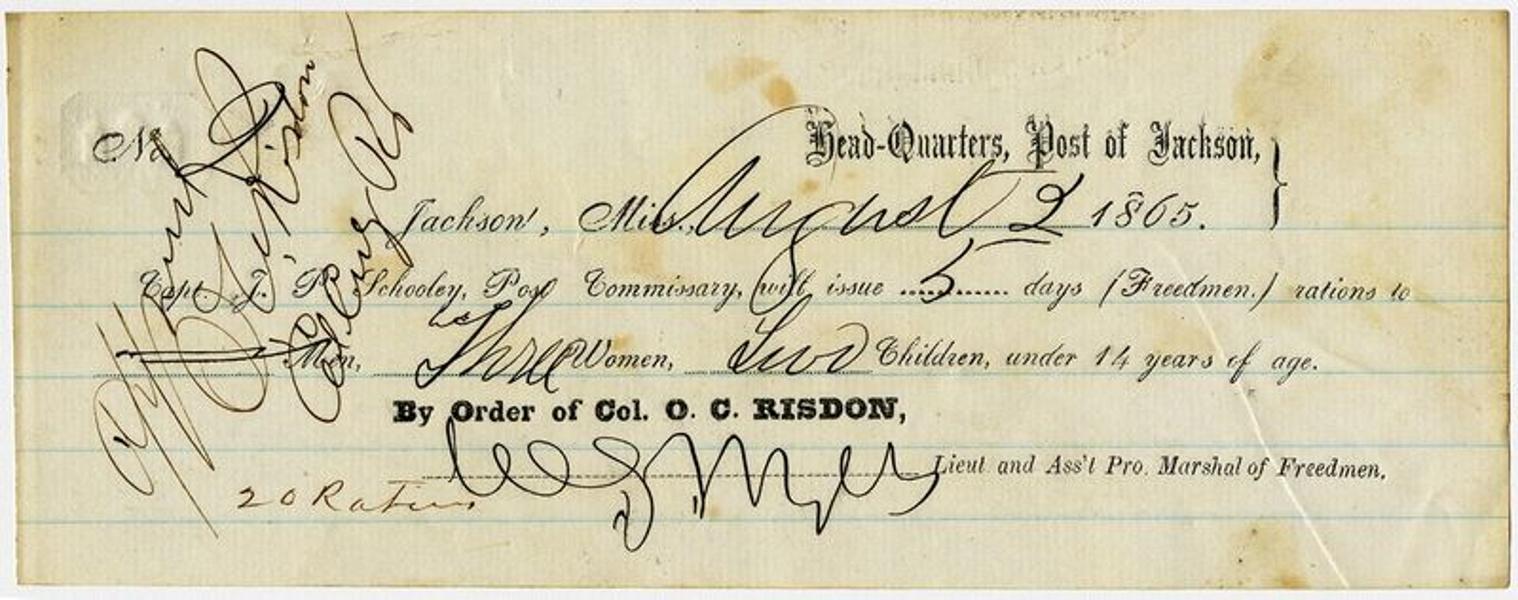 No
Head-Quarters, Post of Jackson,
Jackson, Miss., August 2 1865.
Capt. J. P. Schooley, Post Commissary, will issue 5 days (Freedmen.) rations to
Men, Three Women, Two Children, under 14 years of age.
By Order of Col. O. C. RISDON,
Lieut and Ass't Pro. Marshal of Freedmen.
20 Rations
Risdon